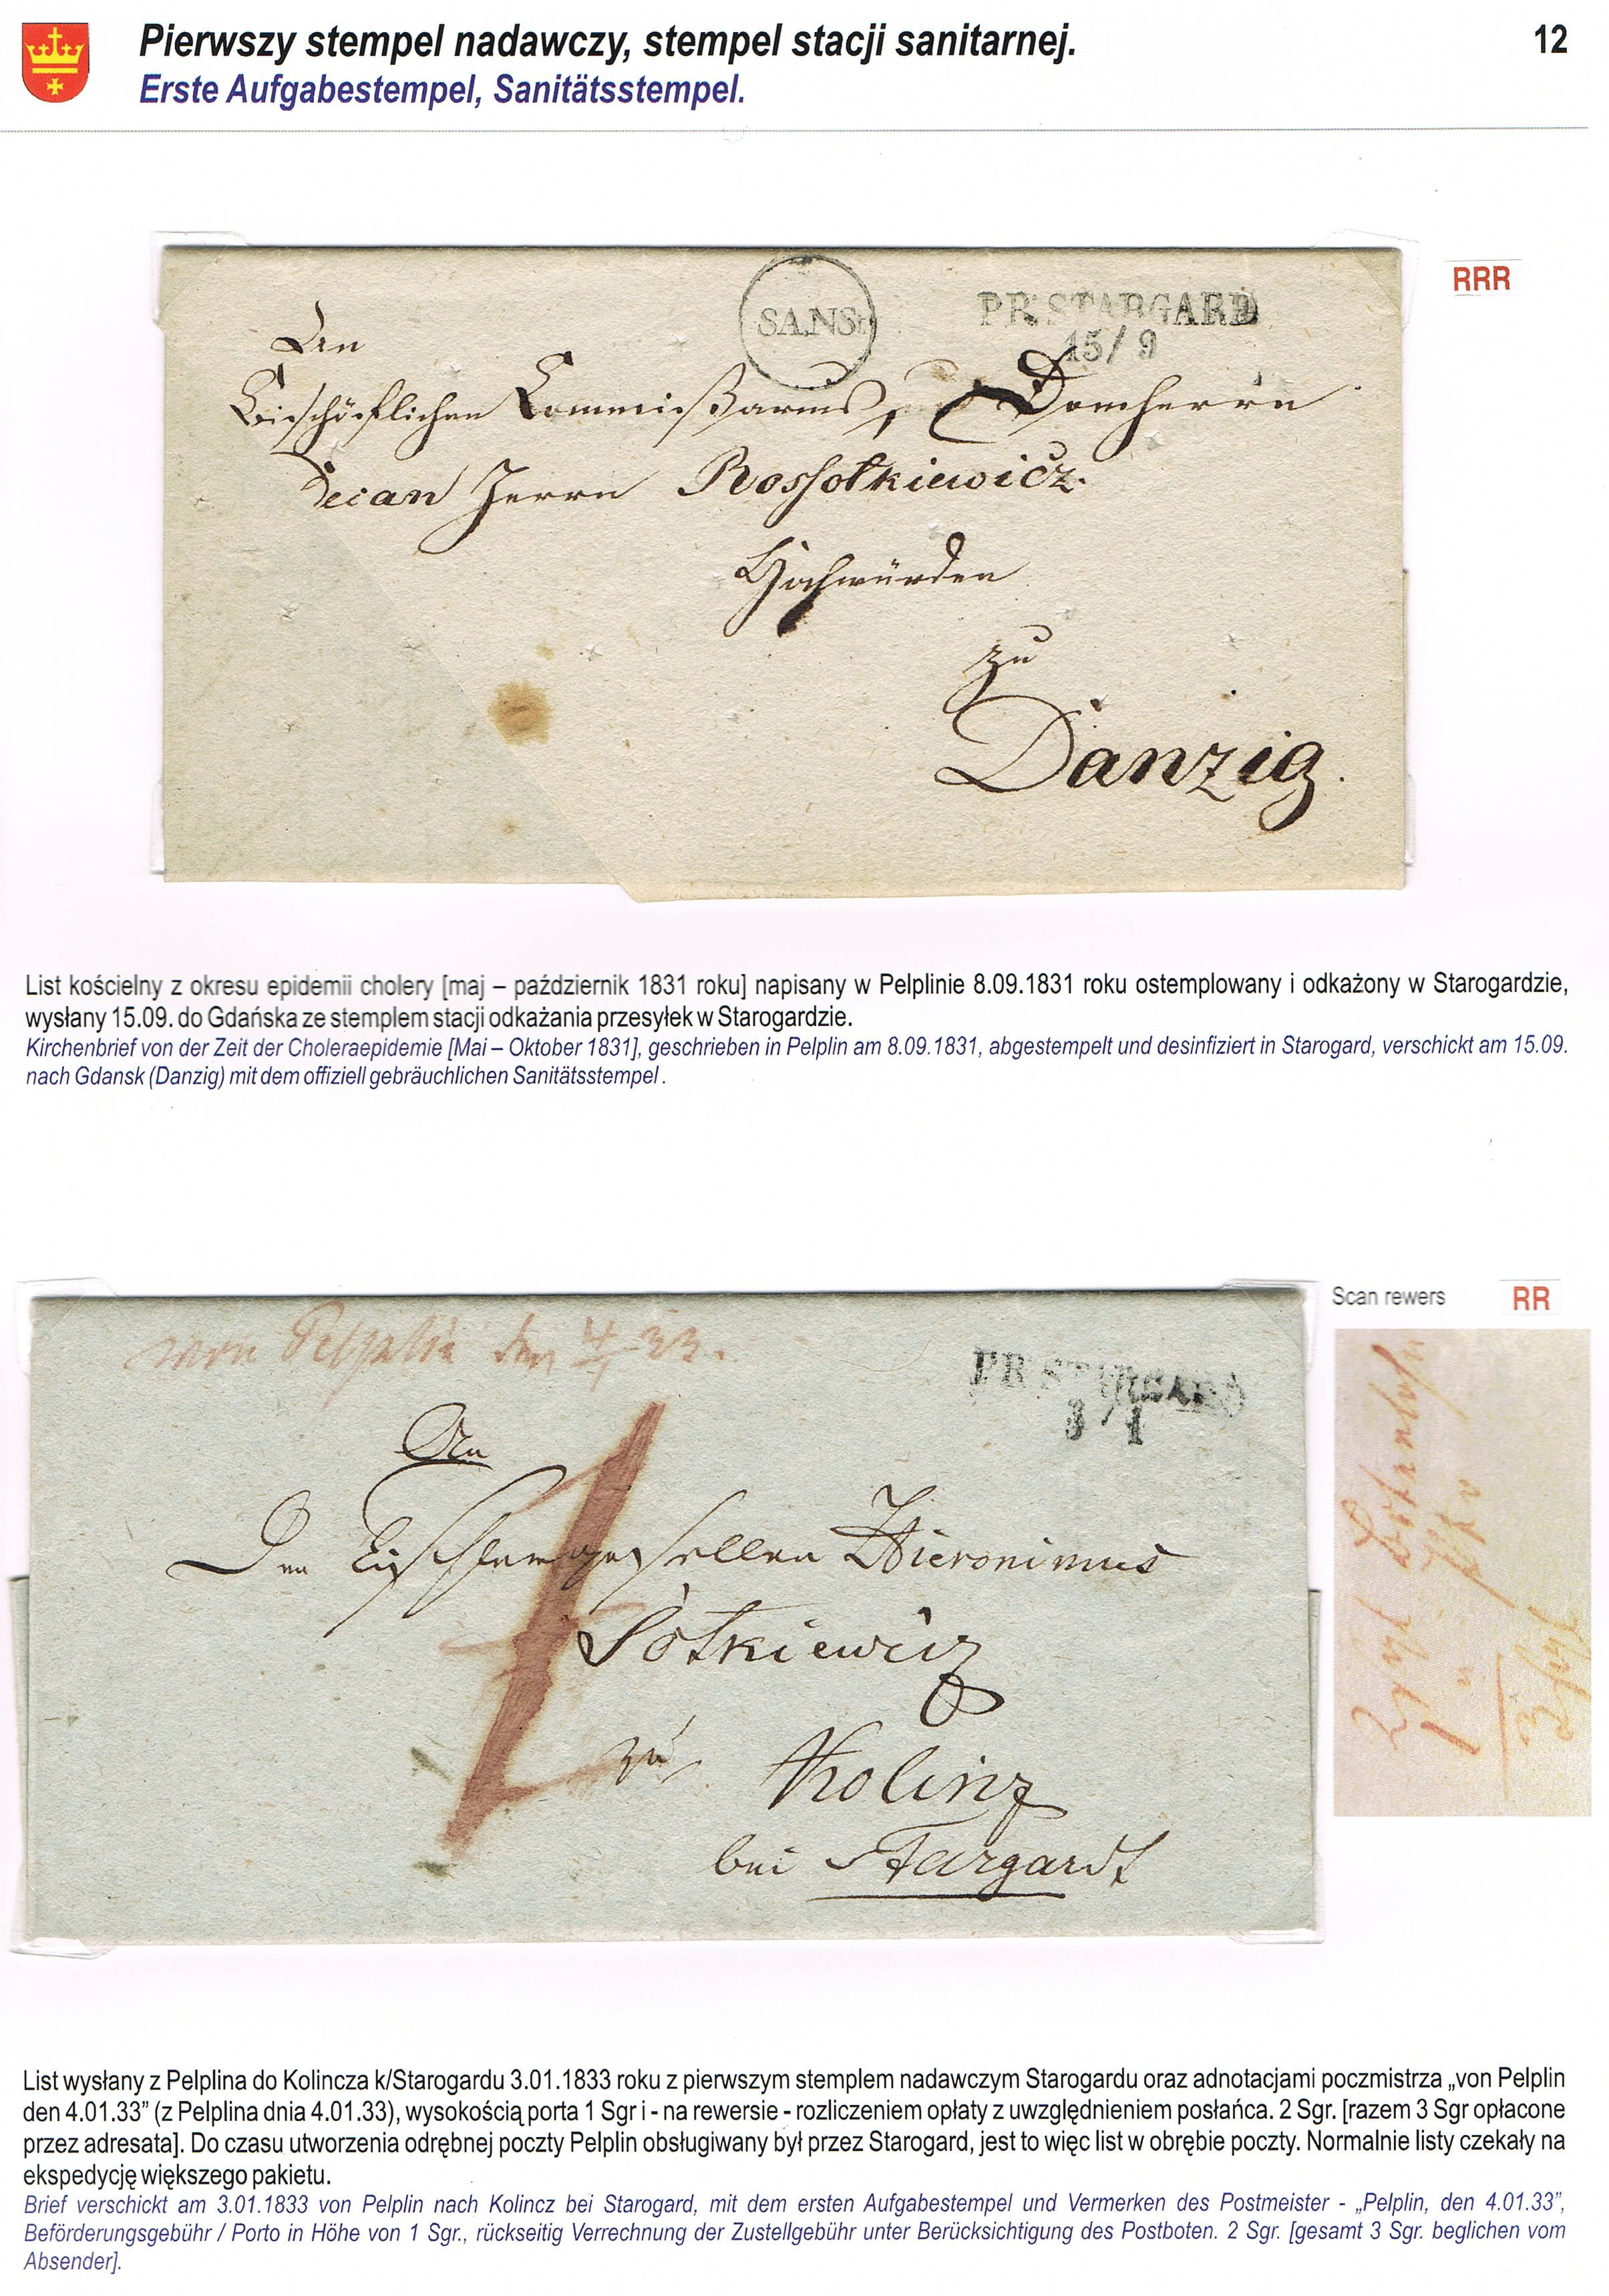 Pierwszy stempel nadawczy, stempel stacji sanitarnej.
12
Erste Aufgabestempel, Sanitätsstempel.
RRR
SAN.St.
PR. STARGARD
15/9
An
Bischöflichen Commißarius, Domherrn
Decan Herrn Rossołkiewicz.
Hochwürden
zu
Danzig.
List kościelny z okresu epidemii cholery [maj – październik 1831 roku] napisany w Pelplinie 8.09.1831 roku ostemplowany i odkażony w Starogardzie,
wysłany 15.09. do Gdańska ze stemplem stacji odkażania przesyłek w Starogardzie.
Kirchenbrief von der Zeit der Choleraepidemie [Mai – Oktober 1831], geschrieben in Pelplin am 8.09.1831, abgestempelt und desinfiziert in Starogard, verschickt am 15.09.
nach Gdansk (Danzig) mit dem offiziell gebräuchlichen Sanitätsstempel.
Scan rewers
RR
von Pelplin den 4/1 33.
PR STARGARD
3/1
An
Den Tischlergesellen Hieronimus
Sotkiewicz
zu
Kolinz
bei Stargardt
2 sgl Botenlohn
1 "
3 sgl
List wysłany z Pelplina do Kolincza k/Starogardu 3.01.1833 roku z pierwszym stemplem nadawczym Starogardu oraz adnotacjami poczmistrza „von Pelplin
den 4.01.33” (z Pelplina dnia 4.01.33), wysokością porta 1 Sgr i - na rewersie - rozliczeniem opłaty z uwzględnieniem posłańca. 2 Sgr. [razem 3 Sgr opłacone
przez adresata]. Do czasu utworzenia odrębnej poczty Pelplin obsługiwany był przez Starogard, jest to więc list w obrębie poczty. Normalnie listy czekały na
ekspedycję większego pakietu.
Brief verschickt am 3.01.1833 von Pelplin nach Kolincz bei Starogard, mit dem ersten Aufgabestempel und Vermerken des Postmeister - „Pelplin, den 4.01.33”,
Beförderungsgebühr / Porto in Höhe von 1 Sgr., rückseitig Verrechnung der Zustellgebühr unter Berücksichtigung des Postboten. 2 Sgr. [gesamt 3 Sgr. beglichen vom
Absender].